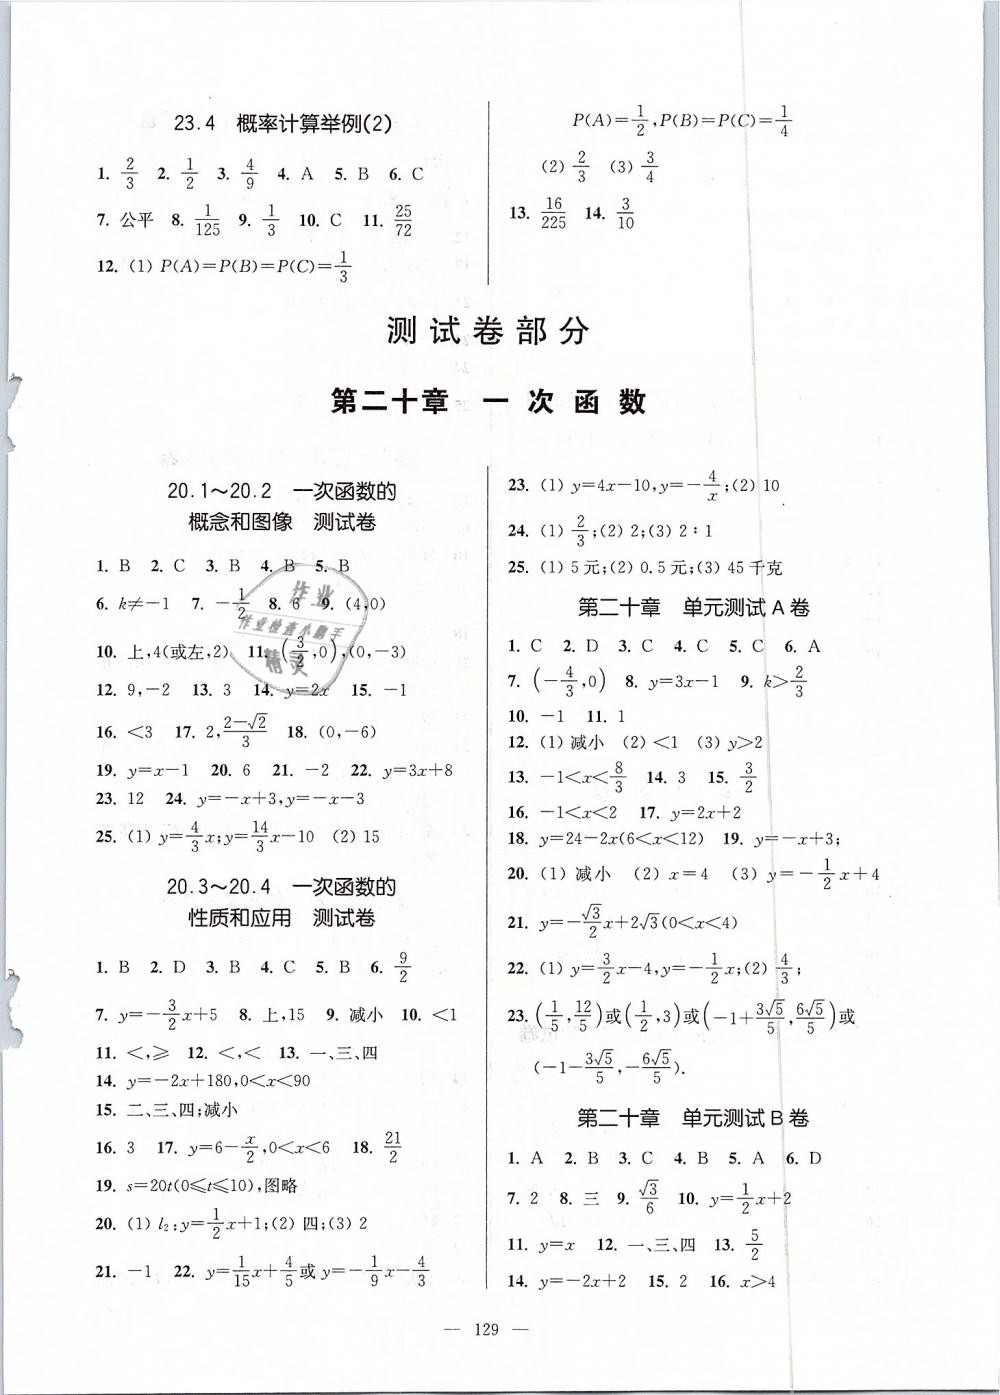 23.4 概率计算举例(2)
1. 2/3 2. 1/2 3. 4/9 4. A 5. B 6. C
7. 公平 8. 1/125 9. 1/3 10. C 11. 25/72
12. (1) P(A)=P(B)=P(C)=1/3
P(A)=1/2,P(B)=P(C)=1/4
(2) 2/3 (3) 3/4
13. 16/225 14. 3/10
测试卷部分
第二十章 一次函数
20.1～20.2 一次函数的
概念和图像 测试卷
1. B 2. C 3. B 4. B 5. B
6. k≠-1 7. -1/2 8. 6 9. (4,0)
10. 上,4(或左,2) 11. (3/2,0),(0,-3)
12. 9,-2 13. 3 14. y=2x 15. -1
16. <3 17. 2,(2-√2)/3 18. (0,-6)
19. y=x-1 20. 6 21. -2 22. y=3x+8
23. 12 24. y=-x+3,y=-x-3
25. (1) y=4/3x;y=14/3x-10 (2) 15
20.3～20.4 一次函数的
性质和应用 测试卷
1. B 2. D 3. B 4. C 5. B 6. 9/2
7. y=-3/2x+5 8. 上,15 9. 减小 10. <1
11. <,⩾ 12. <,< 13. 一、三、四
14. y=-2x+180,0<x<90
15. 二、三、四;减小
16. 3 17. y=6-x/2,0<x<6 18. 21/2
19. s=20t(0⩽t⩽10),图略
20. (1) l₂:y=1/2x+1;(2) 四;(3) 2
21. -1 22. y=1/15x+4/5或y=-1/9x-4/3
23. (1) y=4x-10,y=-4/x;(2) 10
24. (1) 2/3;(2) 2;(3) 2∶1
25. (1) 5元;(2) 0.5元;(3) 45千克
第二十章 单元测试A卷
1. C 2. D 3. C 4. C 5. C 6. A
7. (-4/3,0) 8. y=3x-1 9. k>2/3
10. -1 11. 1
12. (1) 减小 (2) <1 (3) y>2
13. -1<x<8/3 14. 3 15. 3/2
16. -1<x<2 17. y=2x+2
18. y=24-2x(6<x<12) 19. y=-x+3;
20. (1) 减小 (2) x=4 (3) y=-1/2x+4
21. y=-√3/2x+2√3(0<x<4)
22. (1) y=3/2x-4,y=-1/2x;(2) 4/3;
23. (1/5,12/5)或(1/2,3)或(-1+3√5/5,6√5/5)或
(-1-3√5/5,-6√5/5).
第二十章 单元测试B卷
1. A 2. B 3. C 4. B 5. A 6. D
7. 2 8. 三 9. √3/6 10. y=1/2x+2
11. y=x 12. 一、三、四 13. 5/2
14. y=-2x+2 15. 2 16. x>4
— 129 —
作业
作业检查小帮手
精灵